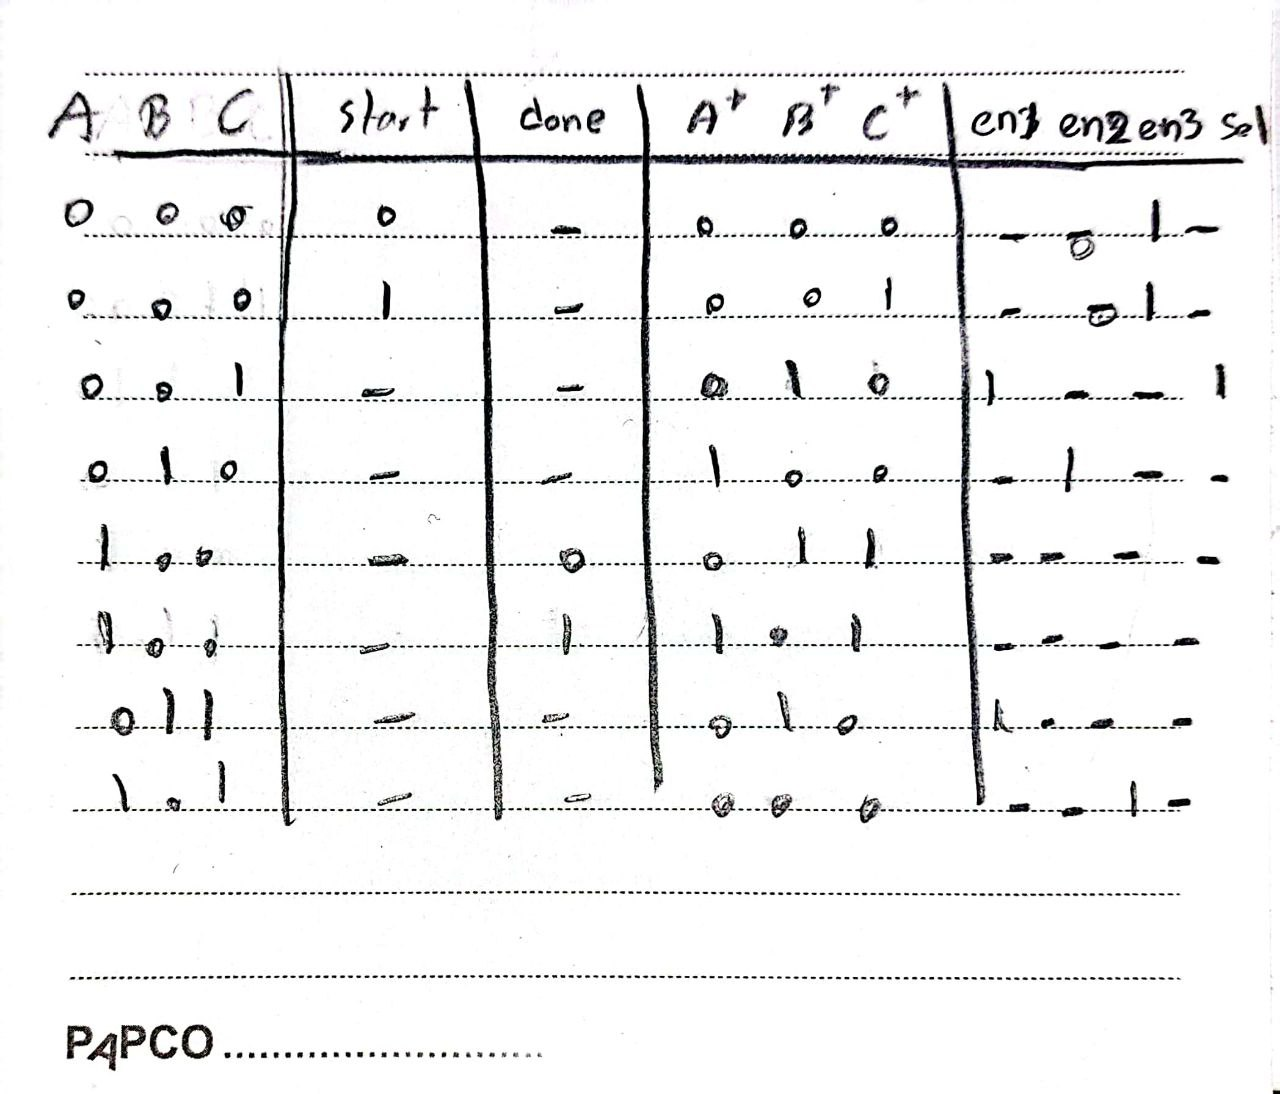 A B C start done A+ B+ C+ en1 en2 en3 sel
0 0 0 0 - 0 0 0 - 0 1 -
0 0 0 1 - 0 0 1 - 0 1 -
0 0 1 - - 0 1 0 1 - - 1
0 1 0 - - 1 0 0 - 1 - -
1 0 0 - 0 0 1 1 - - - -
1 0 0 - 1 1 0 1 - - - -
0 1 1 - - 0 1 0 1 - - -
1 0 1 - - 0 0 0 - - 1 -
PAPCO